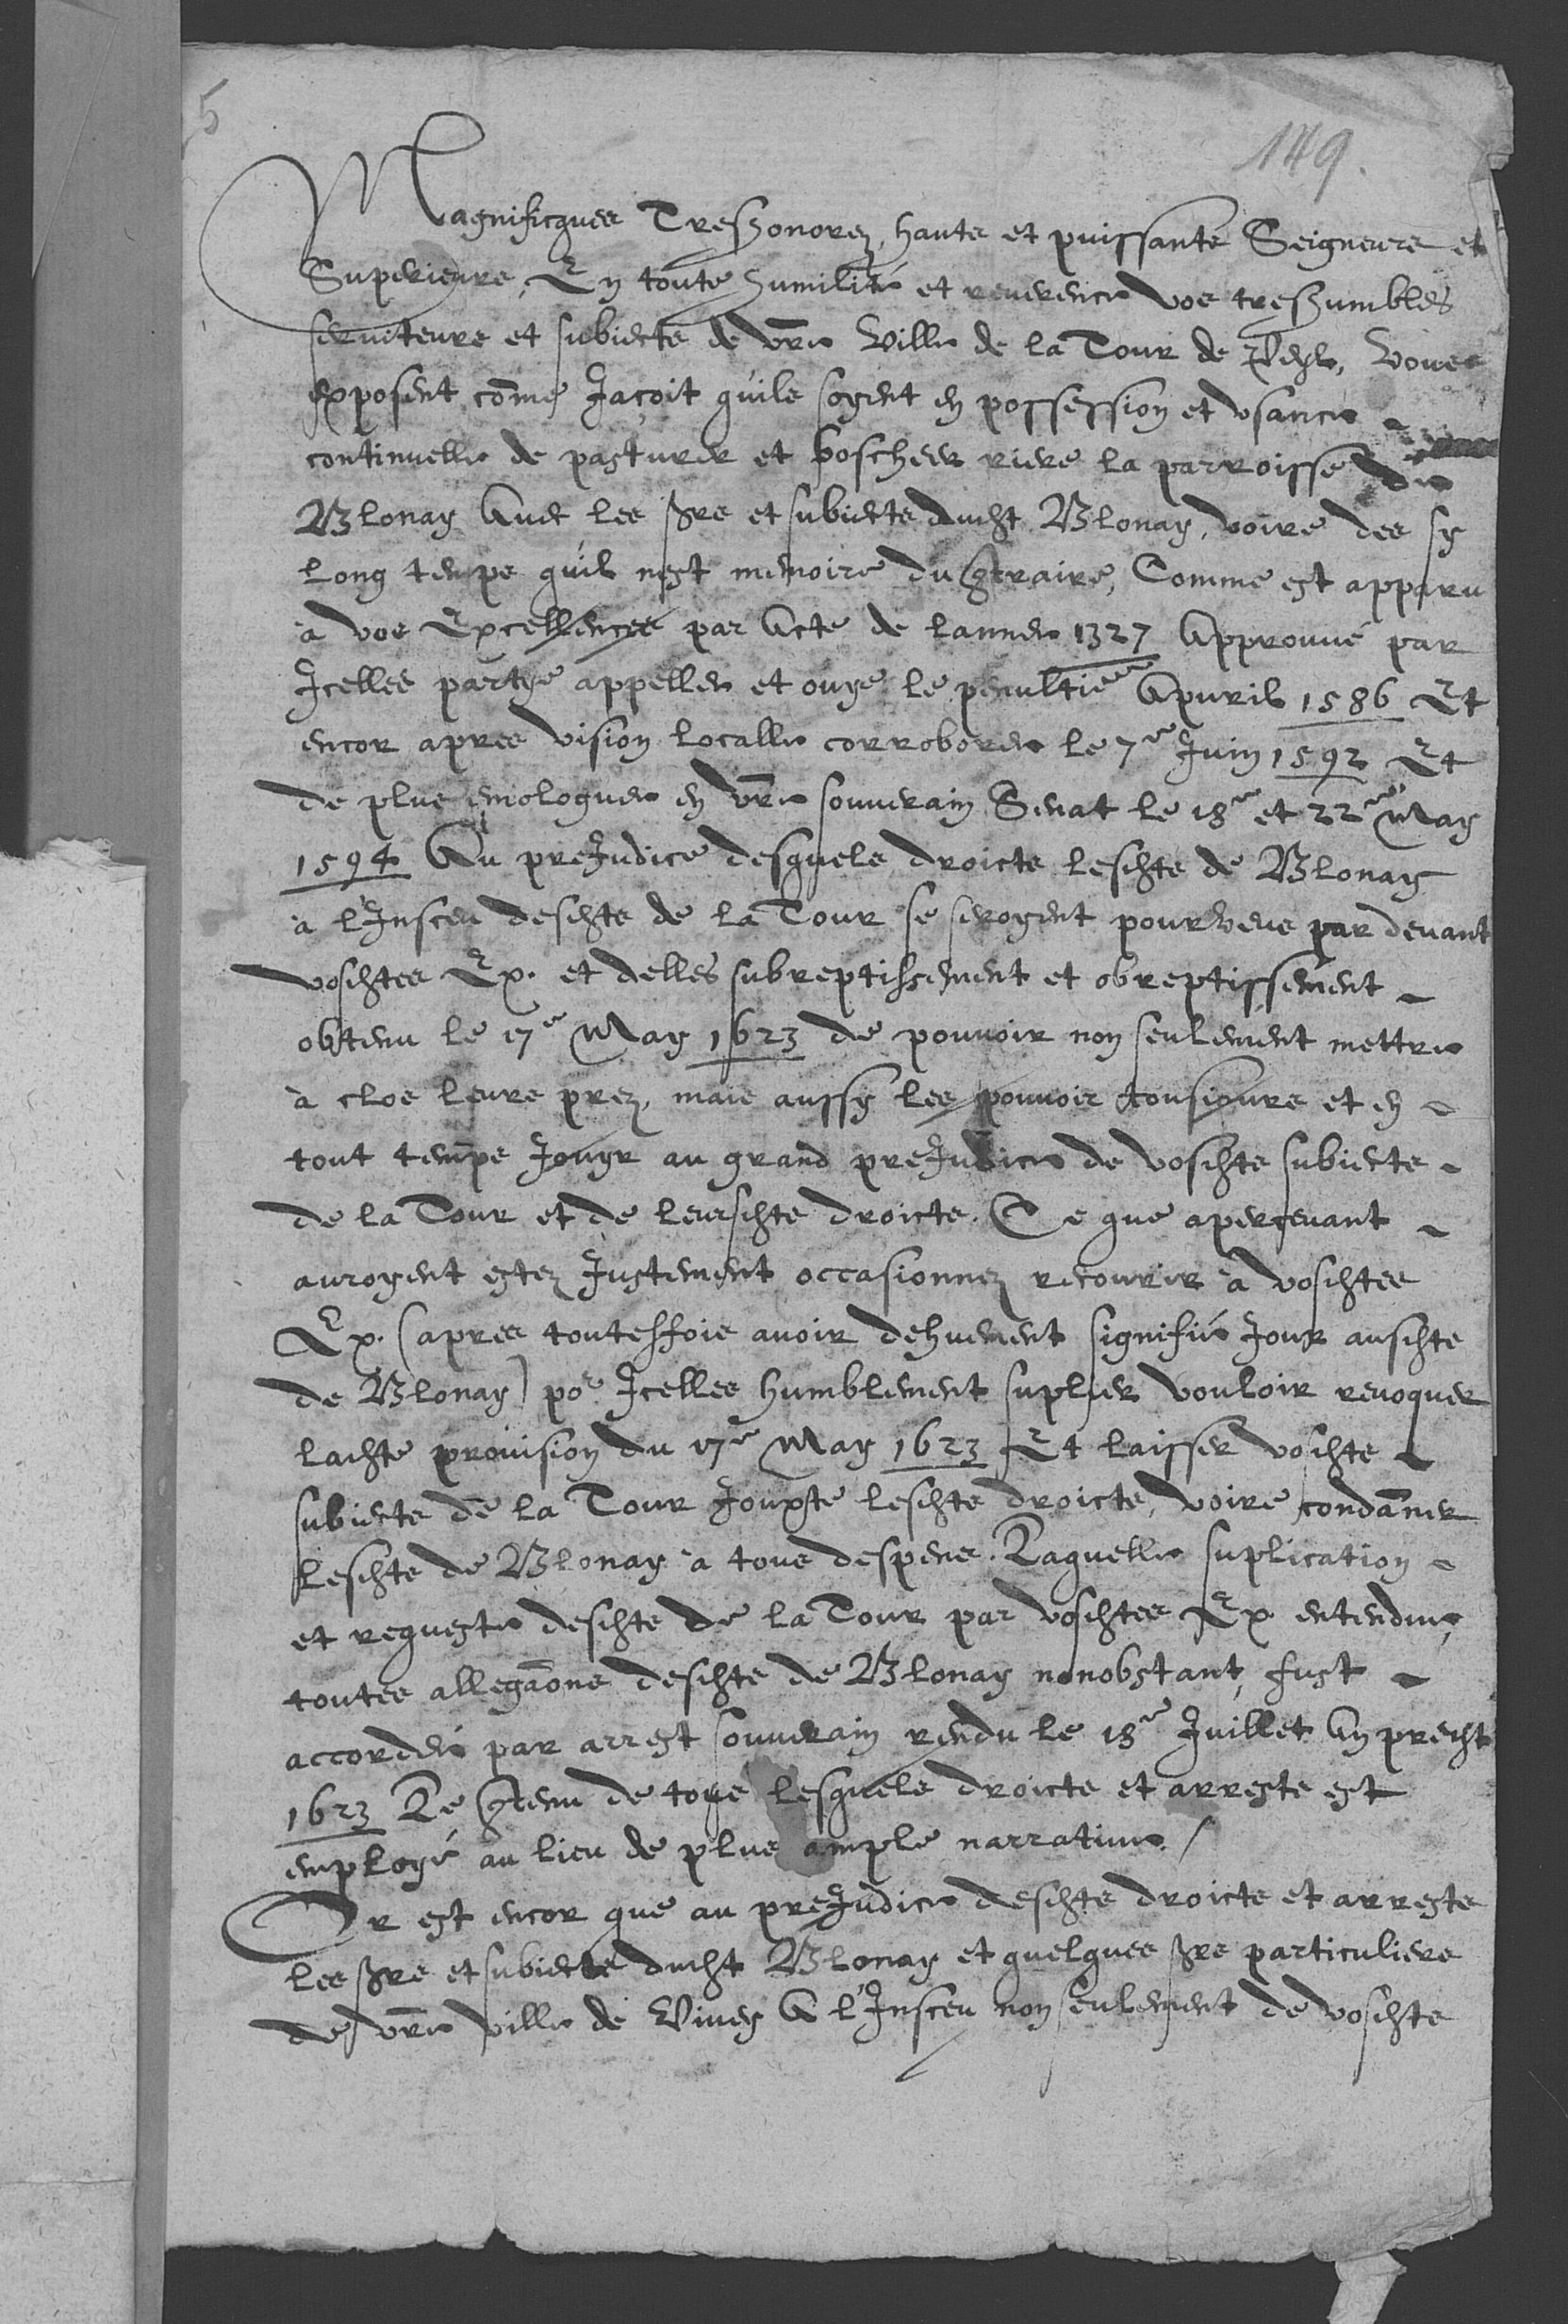 5
149.
Magnificques Treshonorez, hauts et puissants Seigneurs et
Superieurs, En toute humilité et reuerence vos treshumbles
seruiteurs et subiects de vre Ville de la Tour de Peyl, Vous
exposent, come Jaçoit quils soyent en possession et vsance
continuelle de pasturer et boscheer riere la parroisse de
Blonay Auec les srs et subiects dudit Blonay, voire des sy
long temps quil nest memoire du contraire, Comme est apparu
à vos Excellences par Acte de lannee 1327 Approuué par
Jcelles partye appellee et ouye le penultieme Apuril 1586 Et
encor apres vision localle corroboree le 7e Juin 1592 Et
de plus emologuee en vre souuerain Senat le 18e et 22e May
1594 Au preJudice desquels droicts lesdits de Blonay
à l'Insceu desdits de la Tour se seroyent pourveus par deuant
vosdites Ex. et delles subreptissement et obreptissement
obtenu le 17e May 1623 de pouuoir non seulement mettre
à clos leurs prez, mais aussy les pouuoir tousiours et en
tout temps Jouyr au grand preJudice de vosdits subiects
de la Tour et de leursdits droicts. Ce que aperceuant
auroyent estez Justement occasionnez recourir à vosdites
Ex. (apres toutesfois auoir dehuement signifié Jour ausdits
de Blonay) por Jcelles humblement suplier vouloir reuoquer
ladite prouision du 17e May 1623 Et laisser vosdits
subiects de la Tour Jouxte lesdits droicts, voire condamner
lesdits de Blonay à tous despens. Laquelle suplication
et requeste desdits de la Tour par vosdites Ex. entendue,
toutes allegaons desdits de Blonay nonobstant, fust
accordée par arrest souuerain rendu le 18e Juillet An predit
1623 Le contenu de tous lesquels droicts et arrests est
employé au lieu de plus ample narratiue /
Or est encor que au preJudice desdits droicts et arrests
les srs et subiects dudit Blonay et quelques srs particuliers
de vre ville de Viuey A l'Insceu non seulement de vosdits